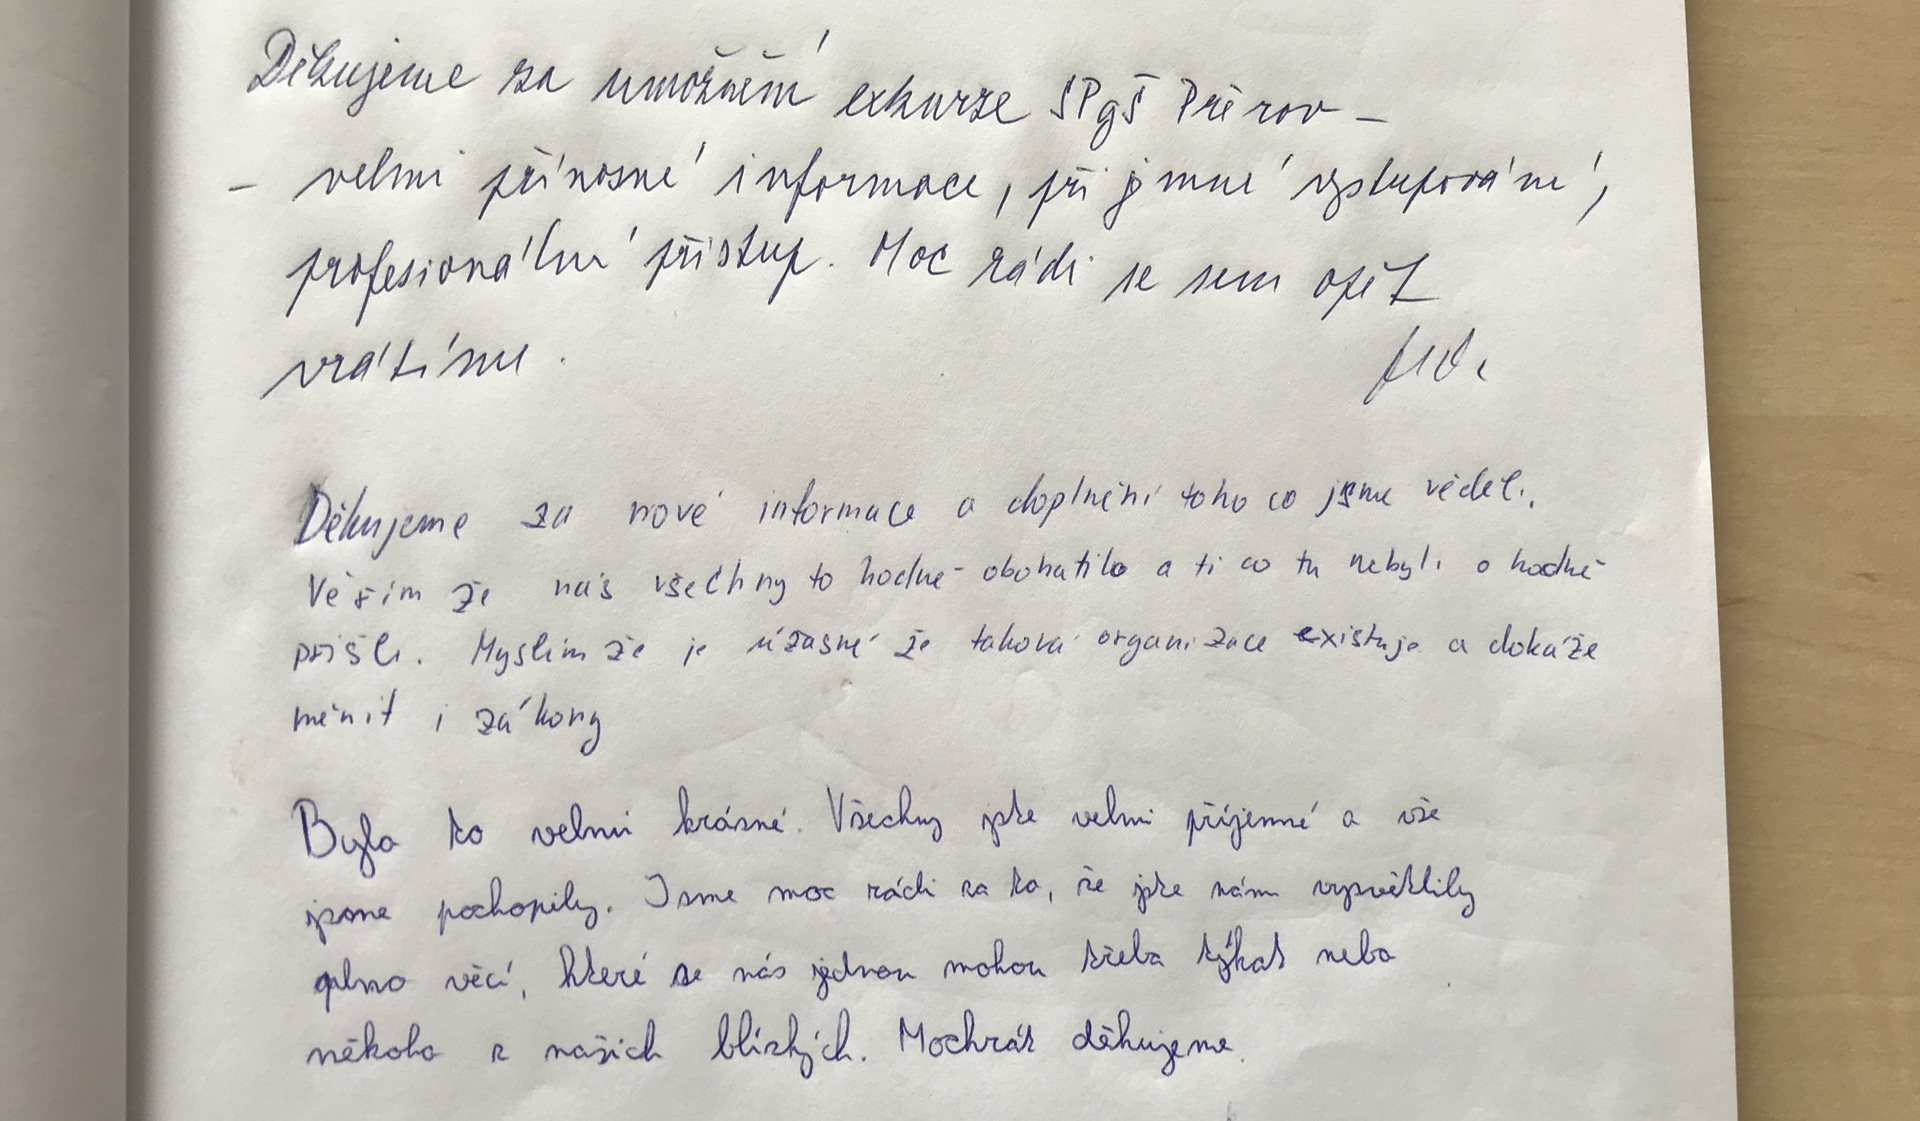 Děkujeme za umožnění exkurze SPgŠ Přerov –
– velmi přínosné informace, příjemné vystupování,
profesionální přístup. Moc rádi se sem opět
vrátíme.
Děkujeme za nové informace a doplnění toho co jsme věděli.
Věřím že nás všechny to hodně obohatilo a ti co tu nebyli o hodně
přišli. Myslím že je úžasné že taková organizace existuje a dokáže
měnit i zákony
Bylo to velmi krásné. Všechny jste velmi příjemné a vše
jsme pochopily. Jsme moc rádi za to, že jste nám vysvětlily
plno věcí, které se nás jednou mohou třeba týkat nebo
někoho z našich blízkých. Mockrát děkujeme.